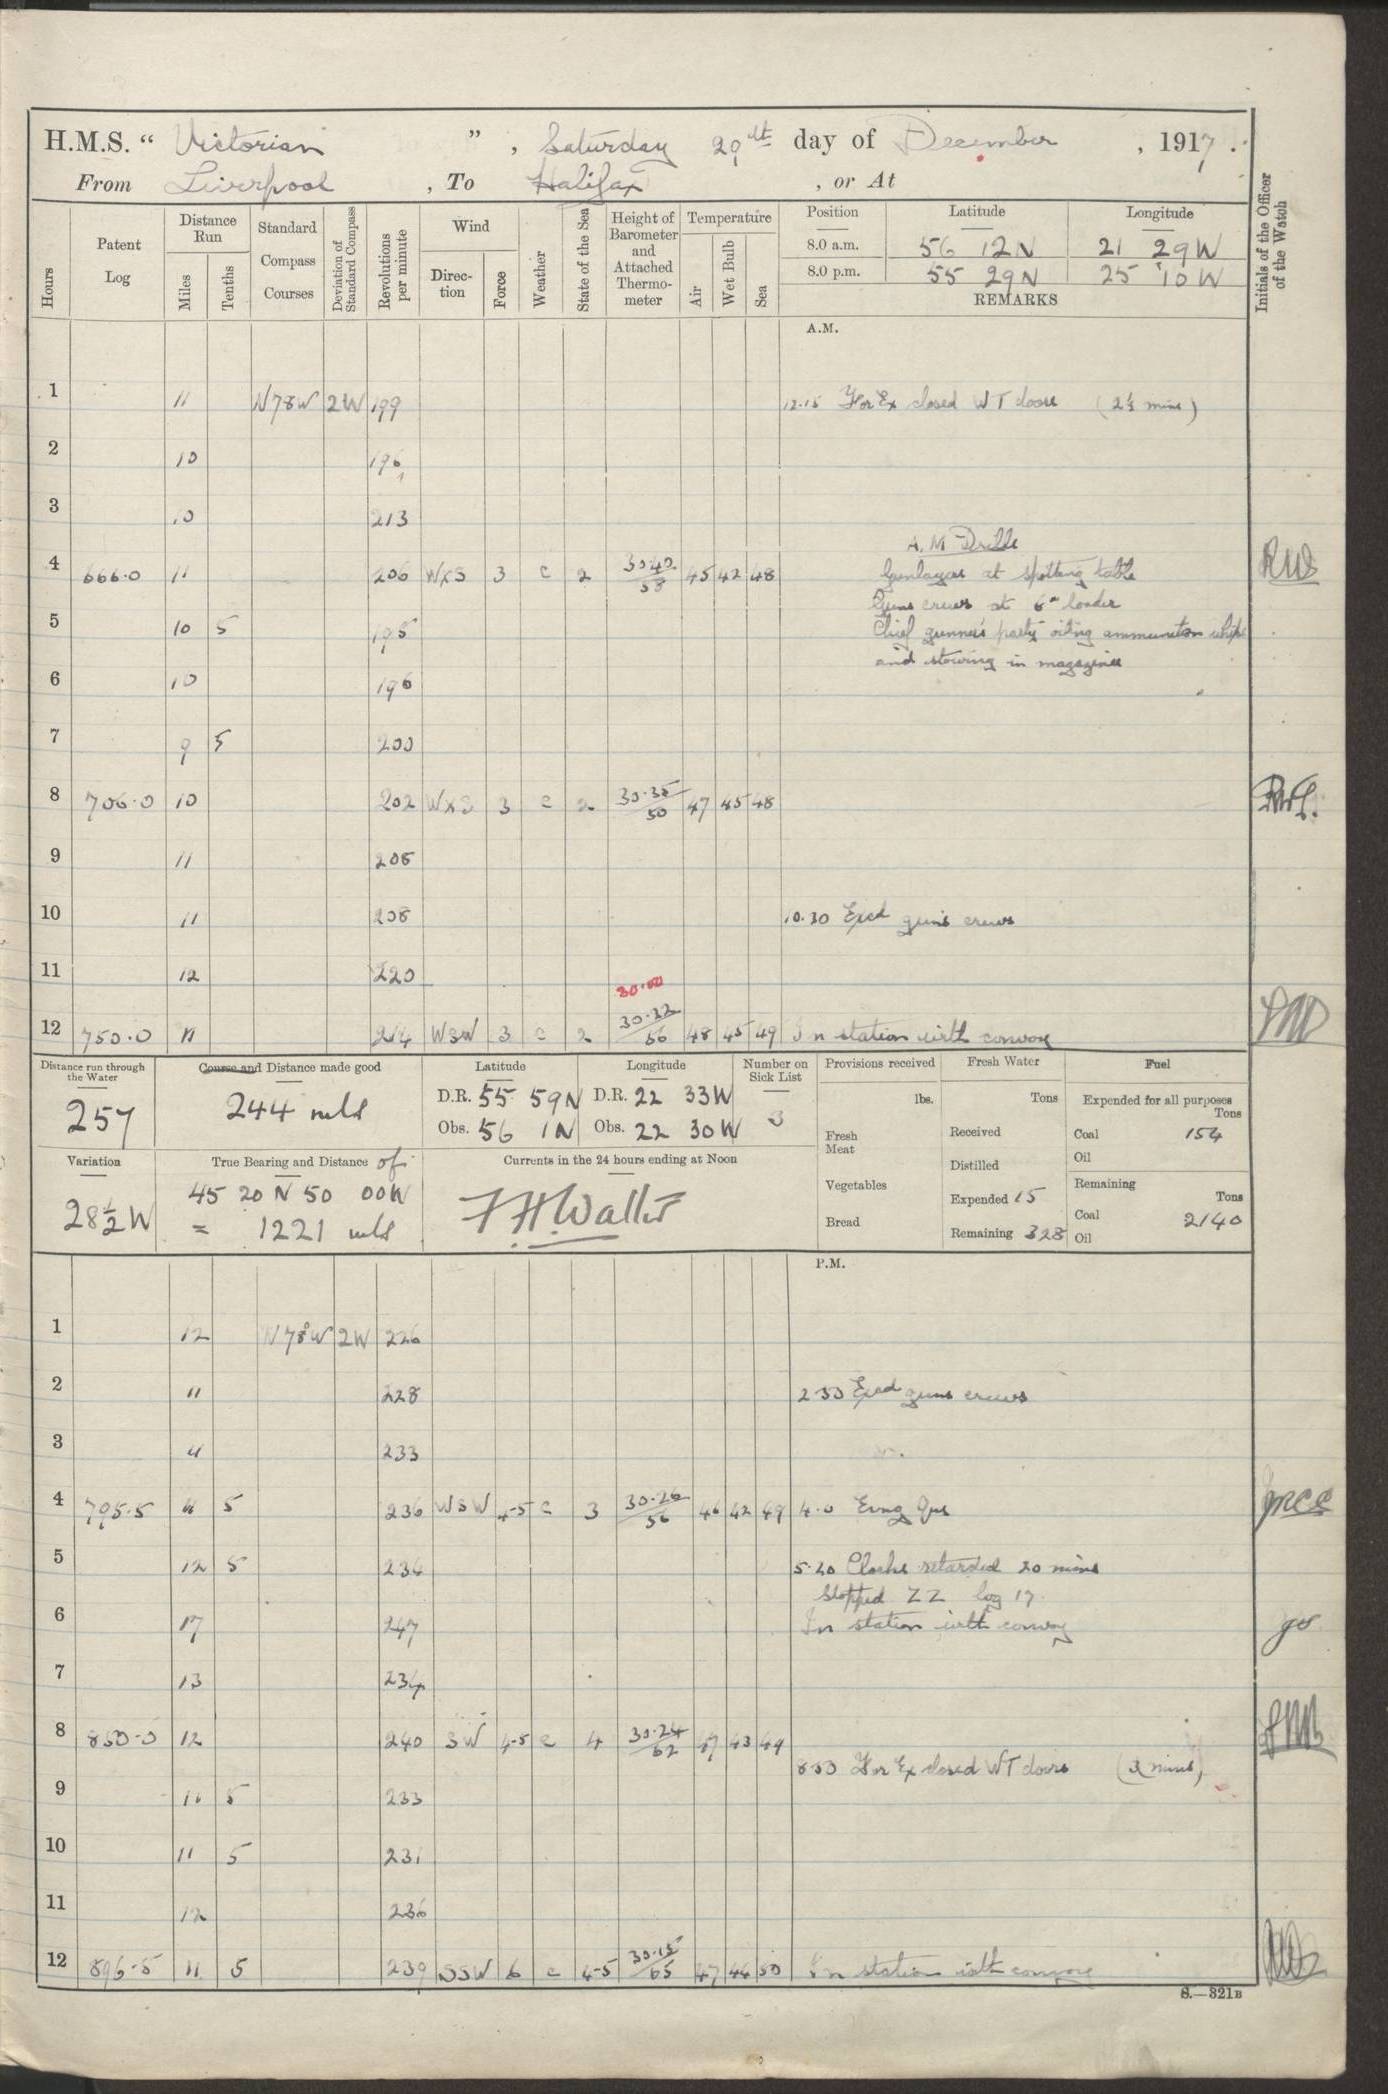 H.M.S. " Victorian " , Saturday 29th day of December , 1917 .
From Liverpool , To Halifax , or At
Hours Patent Log Distance Run Miles Tenths Standard Compass Courses Deviation of Standard Compass Revolutions per minute Wind Direc-tion Force Weather State of the Sea Height of Barometer and Attached Thermo-meter Temperature Air Wet Bulb Sea Position Latitude Longitude Initials of the Officer of the Watch
8.0 a.m. 56 12 N 21 29 W
8.0 p.m. 55 29 N 25 10 W
REMARKS
A.M.
1 11 N78W 2W 199 12.15 For Ex closed WT doors (2½ mins)
2 10 196
3 10 213
A.M Drills
4 666.0 11 206 WxS 3 c 2 30.42/58 45 42 48 Gunlayers at spotting table
Guns crews at 6" loader
5 10 5 195 Chief gunner's party oiling ammunition whips
and stowing in magazines
6 10 196
7 9 5 200
8 706.0 10 202 WxS 3 c 2 30.35/50 47 45 48
9 11 205
10 11 208 10.30 Exed guns crews
11 12 220
30.00
12 750.0 11 214 WSW 3 c 2 30.32/56 48 45 49 In station with convoy
Distance run through the Water Course and Distance made good Latitude Longitude Number on Sick List Provisions received Fresh Water Fuel
257 244 mls D.R. 55 59N D.R. 22 33W 3 lbs. Tons Expended for all purposes Tons
Obs. 56 1N Obs. 22 30W Fresh Meat Received Coal 154
Oil
Variation True Bearing and Distance of Currents in the 24 hours ending at Noon Distilled
28½W 45 20 N 50 00W Vegetables Expended 15 Remaining Tons
= 1221 mls F H Waller Bread Remaining 328 Coal 2140
Oil
P.M.
1 12 N78W 2W 226
2 11 228 2.30 Exed guns crews
3 11 233
4 795.5 11 5 236 WSW 4-5 c 3 30.26/56 46 42 49 4.0 Evng Qrs
5 12 5 234 5.20 Clocks retarded 20 mins
Stopped ZZ log 17
6 17 247 In station with convoy
7 13 234
8 850.0 12 240 SW 4-5 c 4 30.24/62 47 43 49
8.50 For Ex closed WT doors (3 mins)
9 11 5 233
10 11 5 231
11 12 236
12 896.5 11 5 239 SSW 6 c 4-5 30.15/65 47 44 50 In station with convoy
S.—321B